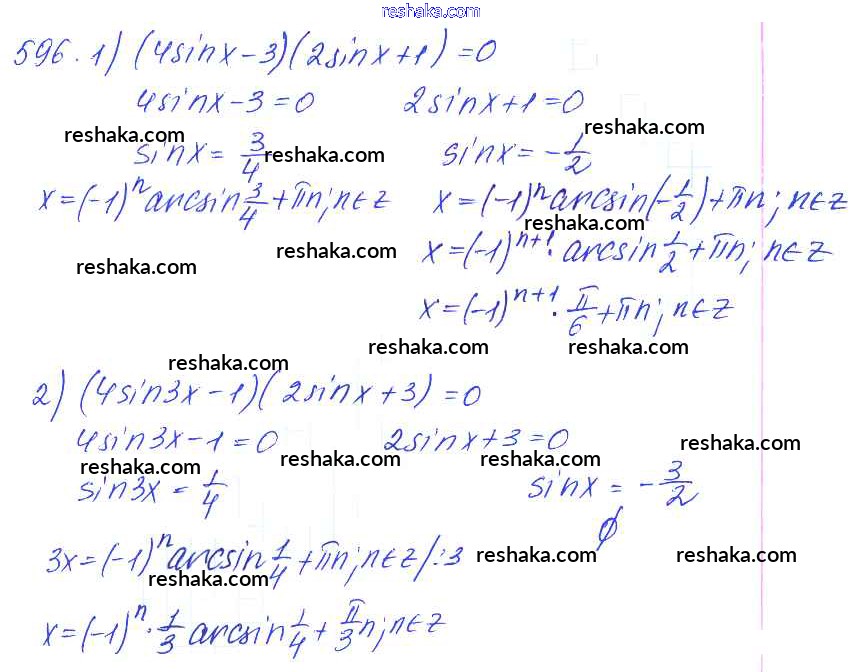 reshaka.com
596. 1) (4sinx-3)(2sinx+1)=0
4sinx-3=0 2sinx+1=0
reshaka.com reshaka.com
sinx= 3/4 reshaka.com sinx= -1/2
x=(-1)^n arcsin 3/4 +πn; n∈Z x=(-1)^n arcsin(-1/2)+πn; n∈Z
reshaka.com
reshaka.com reshaka.com x=(-1)^n+1 · arcsin 1/2 +πn; n∈Z
x=(-1)^n+1 · π/6 +πn; n∈Z
reshaka.com reshaka.com reshaka.com
2) (4sin3x-1)(2sinx+3)=0
4sin3x-1=0 2sinx+3=0
reshaka.com reshaka.com reshaka.com reshaka.com
sin3x = 1/4 sinx = -3/2
∅
3x=(-1)^n arcsin 1/4 +πn; n∈Z /:3 reshaka.com reshaka.com
reshaka.com
x=(-1)^n · 1/3 arcsin 1/4 + π/3 n; n∈Z